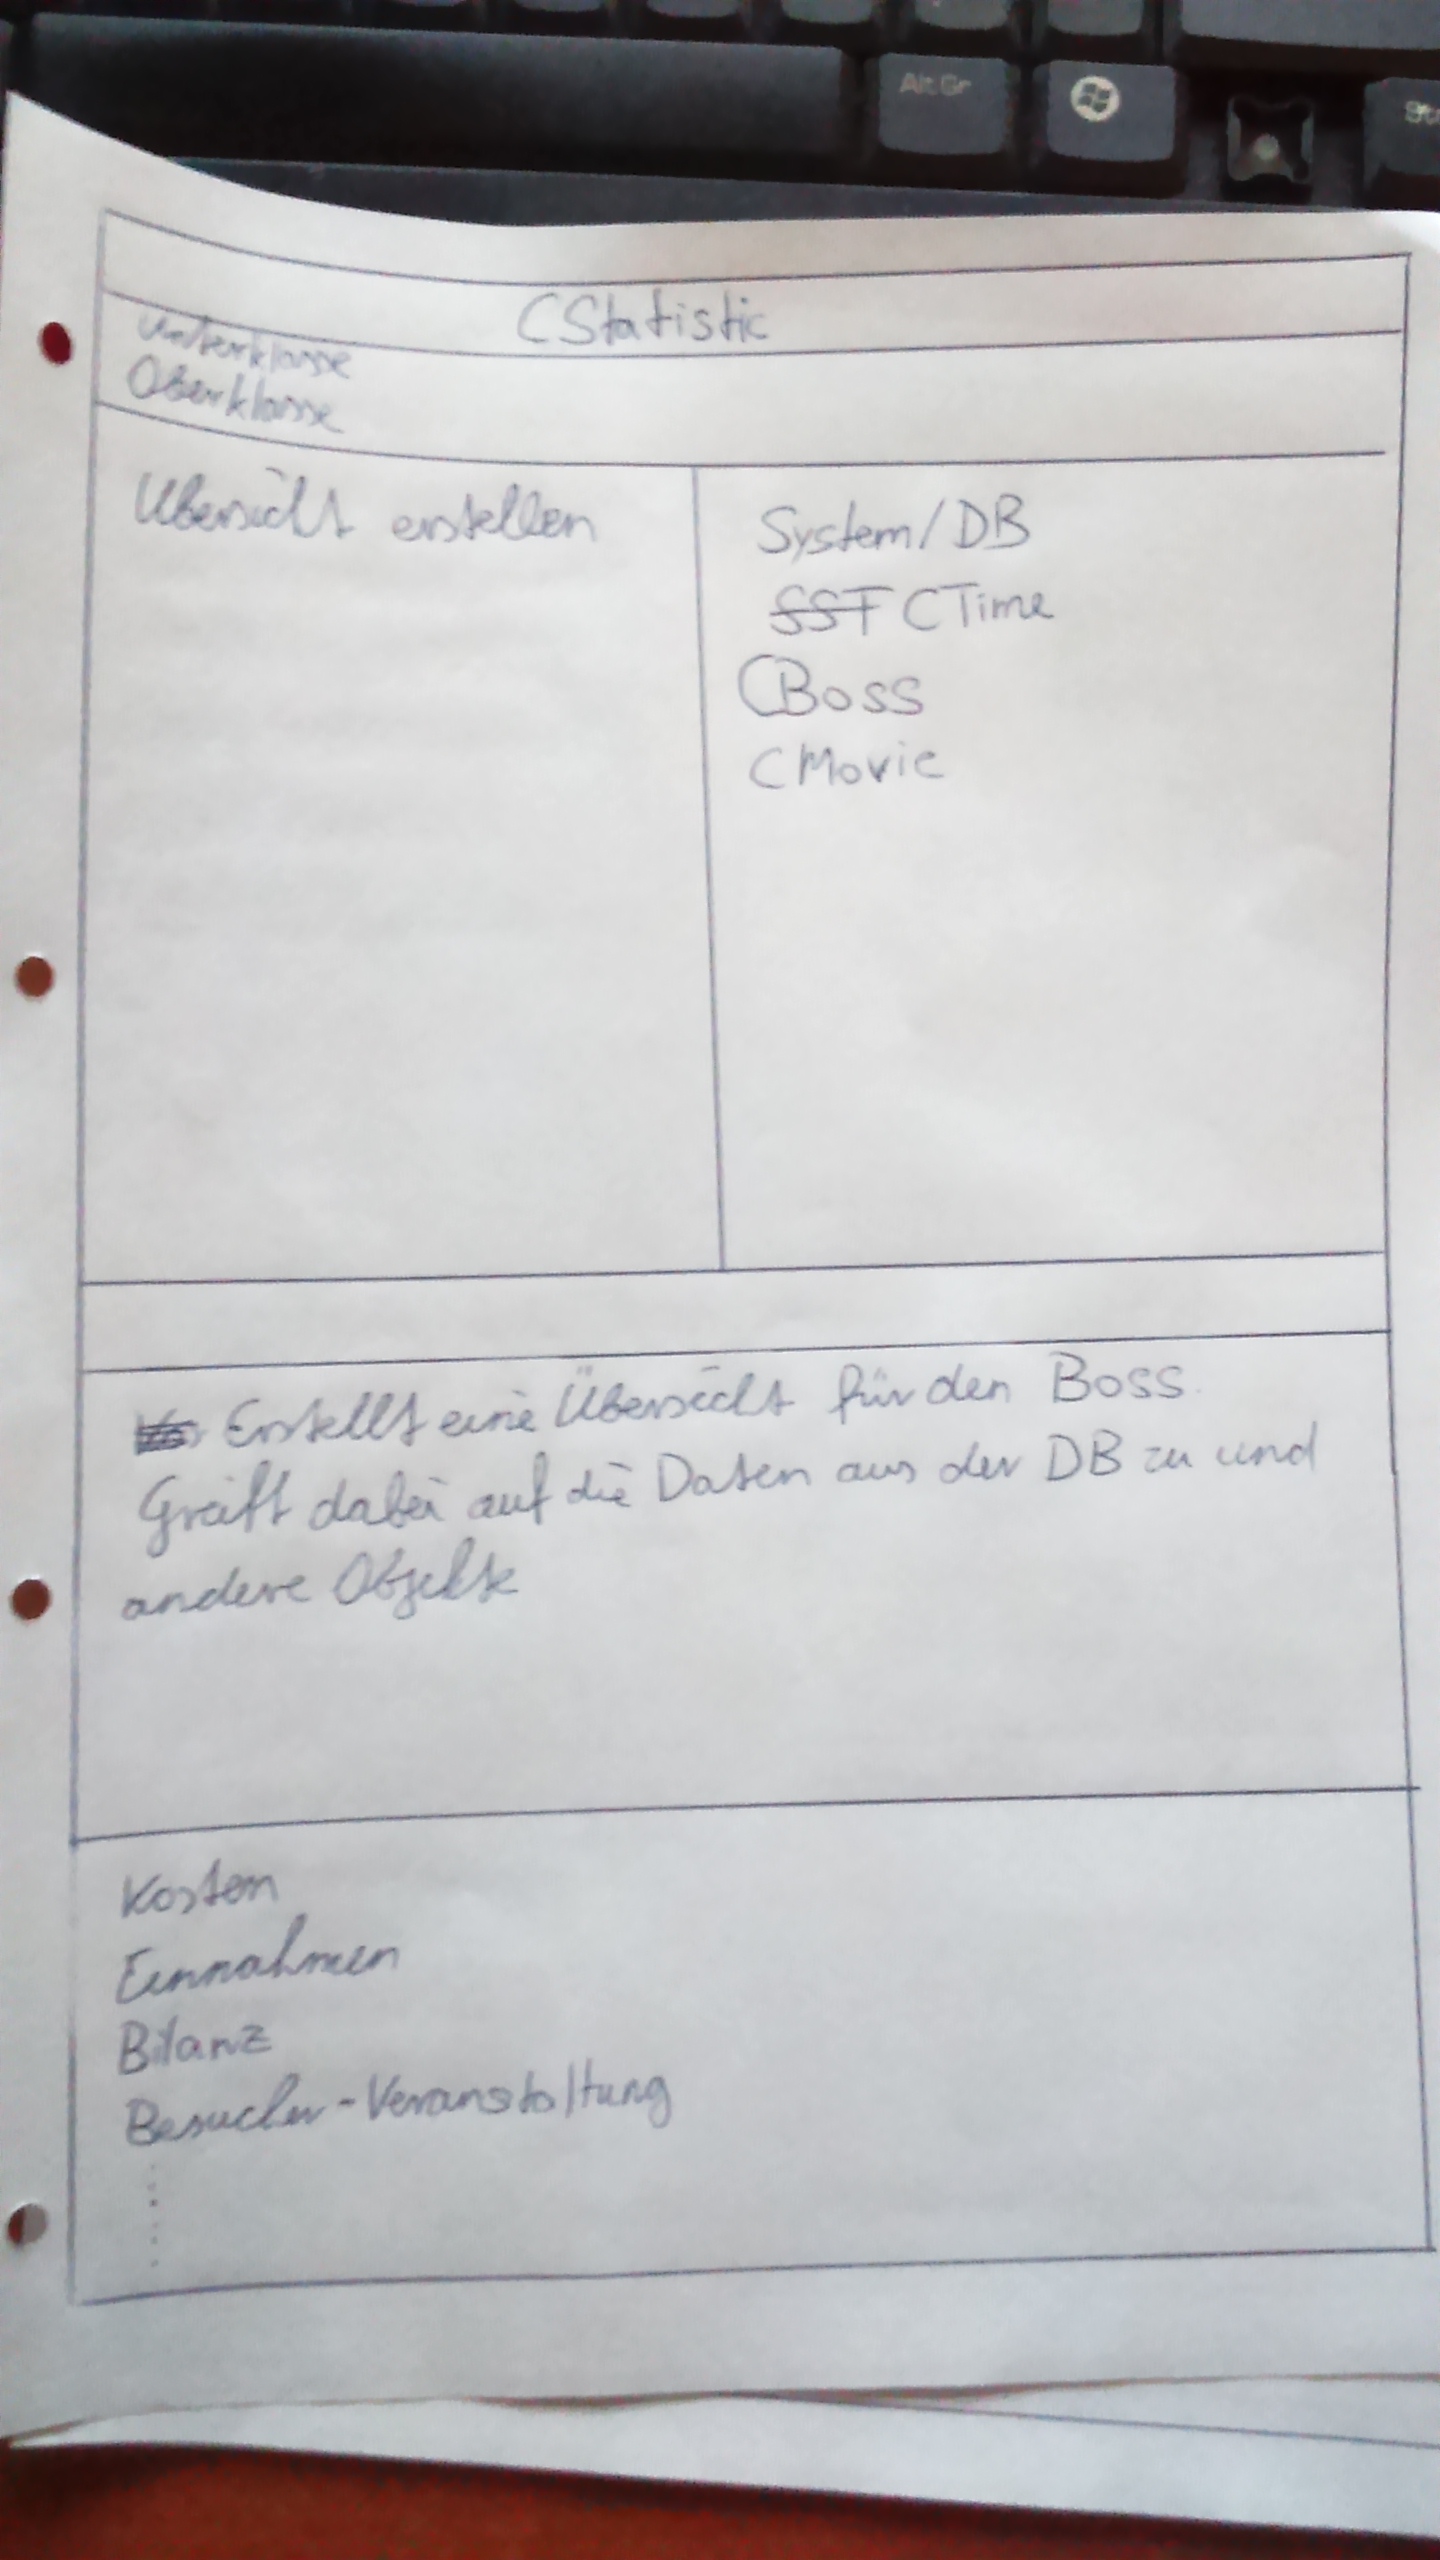 AltGr
CStatistic
Unterklasse
Oberklasse
Übersicht erstellen
System/DB
SST CTime
CBoss
CMovie
Erstellt eine Übersicht für den Boss.
Greift dabei auf die Daten aus der DB zu und
andere Objekte
Kosten
Einnahmen
Bilanz
Besucher-Veranstaltung